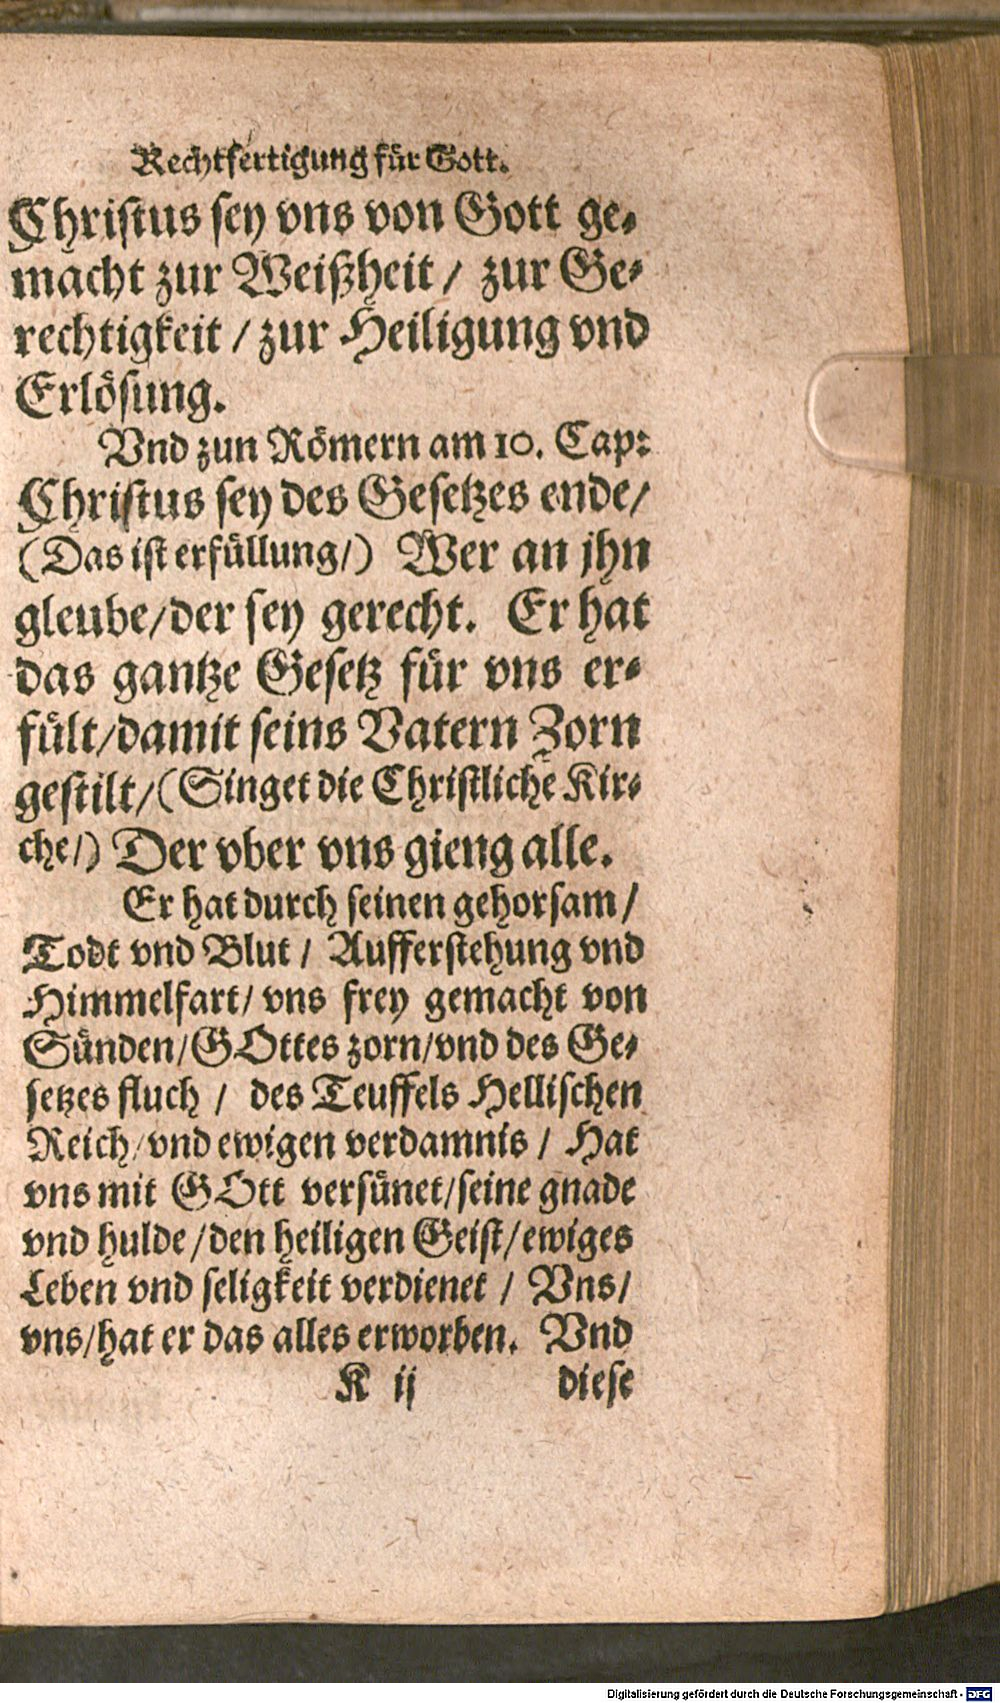 Rechtfertigung für Gott.
Christus sey vns von Gott ge-
macht zur Weißheit / zur Ge-
rechtigkeit / zur Heiligung vnd
Erlösung.
Vnd zun Römern am 10. Cap:
Christus sey des Gesetzes ende/
(Das ist erfüllung/) Wer an jhn
gleube/der sey gerecht. Er hat
das gantze Gesetz für vns er-
fült/damit seins Vatern Zorn
gestilt/(Singet die Christliche Kir-
che/) Der vber vns gieng alle.
Er hat durch seinen gehorsam/
Todt vnd Blut / Aufferstehung vnd
Himmelfart/ vns frey gemacht von
Sünden/GOttes zorn/vnd des Ge-
setzes fluch / des Teuffels Hellischen
Reich/vnd ewigen verdamnis / Hat
vns mit GOtt versünet/seine gnade
vnd hulde/den heiligen Geist/ewiges
Leben vnd seligkeit verdienet / Vns/
vns/hat er das alles erworben. Vnd
K ij diese
Digitalisierung gefördert durch die Deutsche Forschungsgemeinschaft - DFG